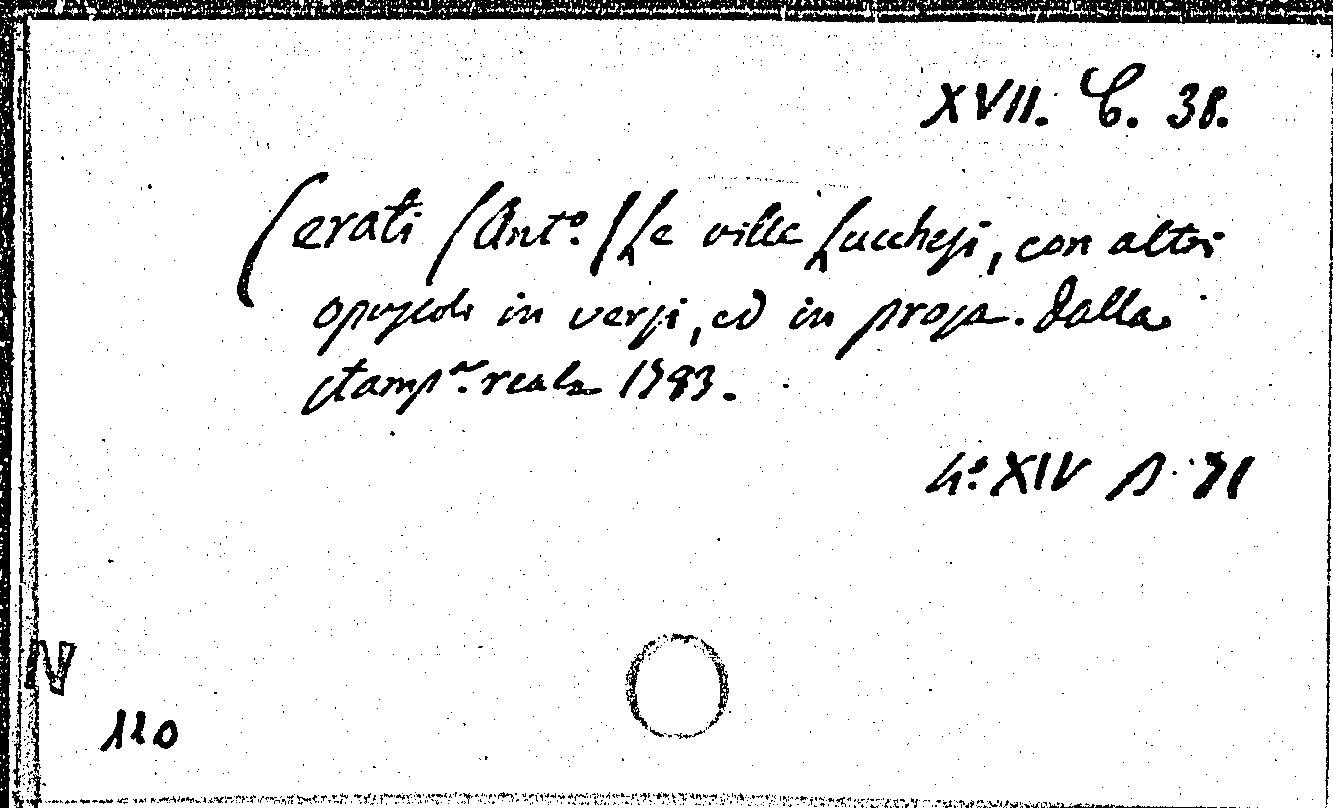 XVII. C. 38.
Cerati (Ant.º) Le ville Lucchesi, con altri
opuscoli in versi, ed in prosa. Dalla
stamp.ª reale 1783.
4.º XIV p. 71
N
110